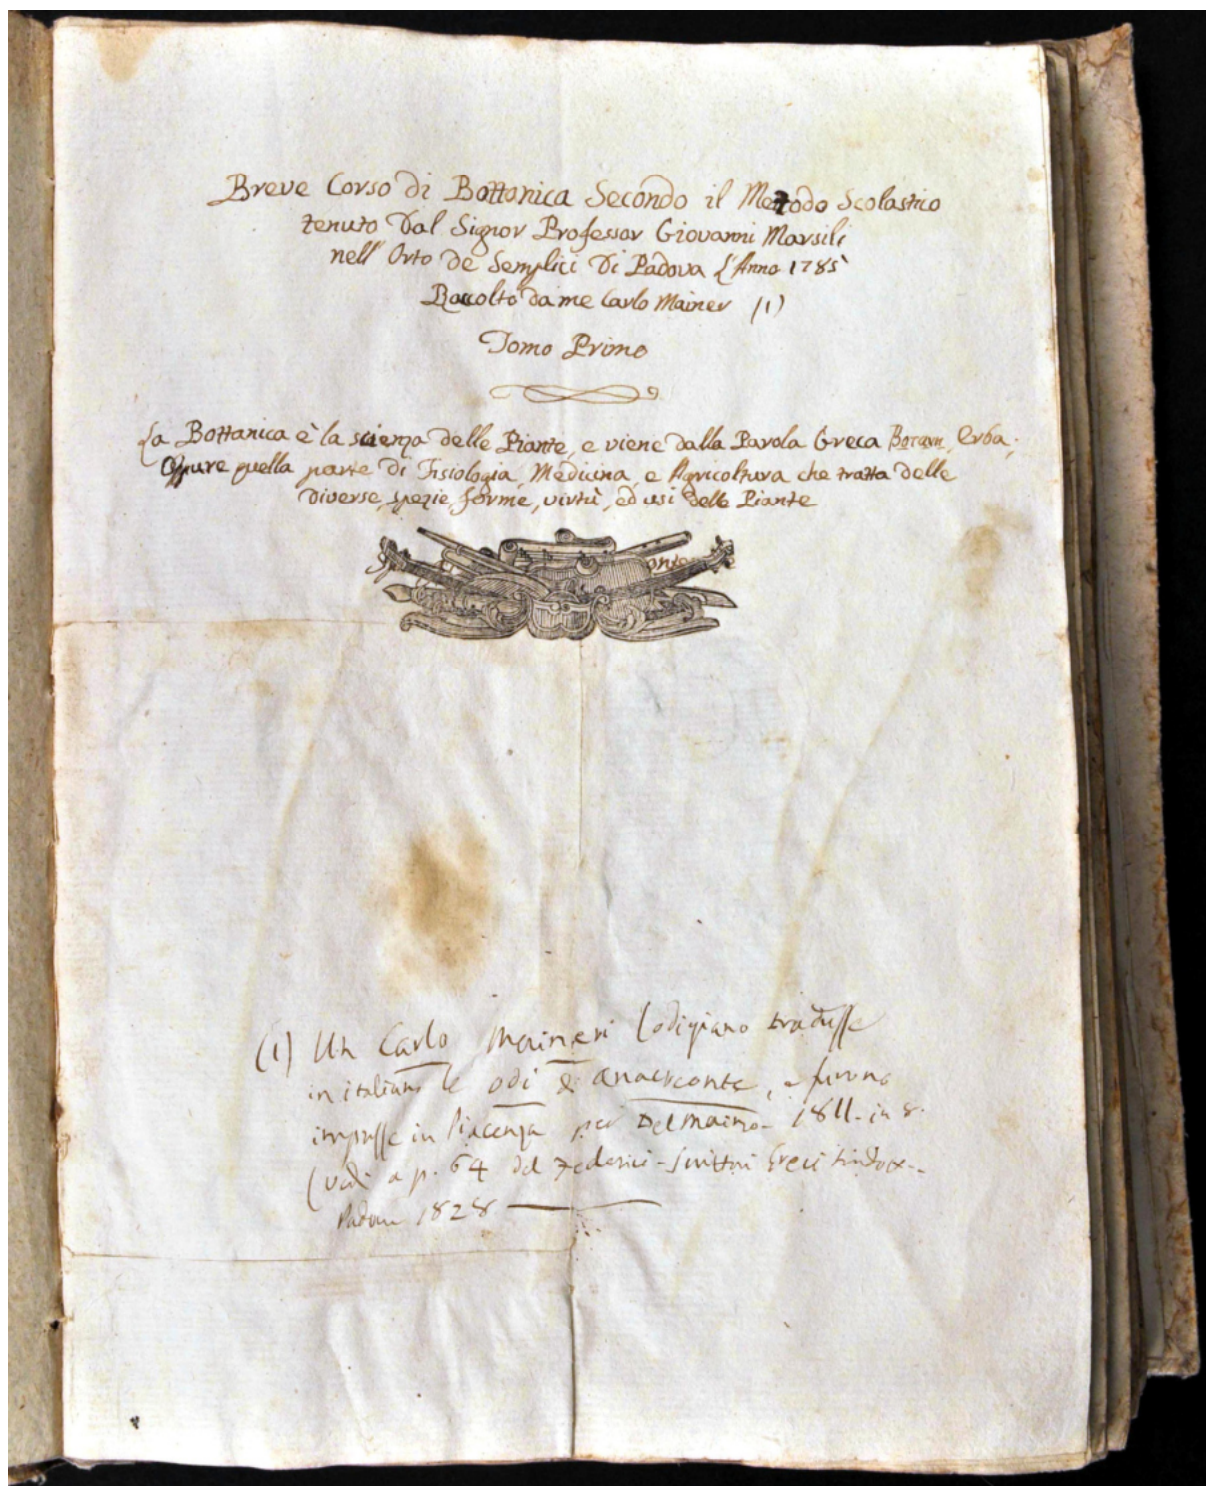 Breve Corso di Bottanica Secondo il Metodo Scolastico
tenuto Dal Signor Professor Giovanni Marsili
nell' Orto de Semplici Di Padova L'Anno 1785
Raccolto da me Carlo Mainer (1)
Tomo Primo
La Bottanica è la scienza delle Piante, e viene dalla Parola Greca Botann, Erba;
Oppure quella parte di Fisiologia, Medicina, e Agricoltura che tratta delle
diverse, spezie, forme, virtù, ed usi delle Piante
(1) Un Carlo Maineri Lodigiano tradusse
in italiano le odi di Anacreonte, e furono
impresse in Piacenza per Del Maino 1811. in 8.
(vedi a p. 64 del Federici - Scrittori Greci
Padova 1828